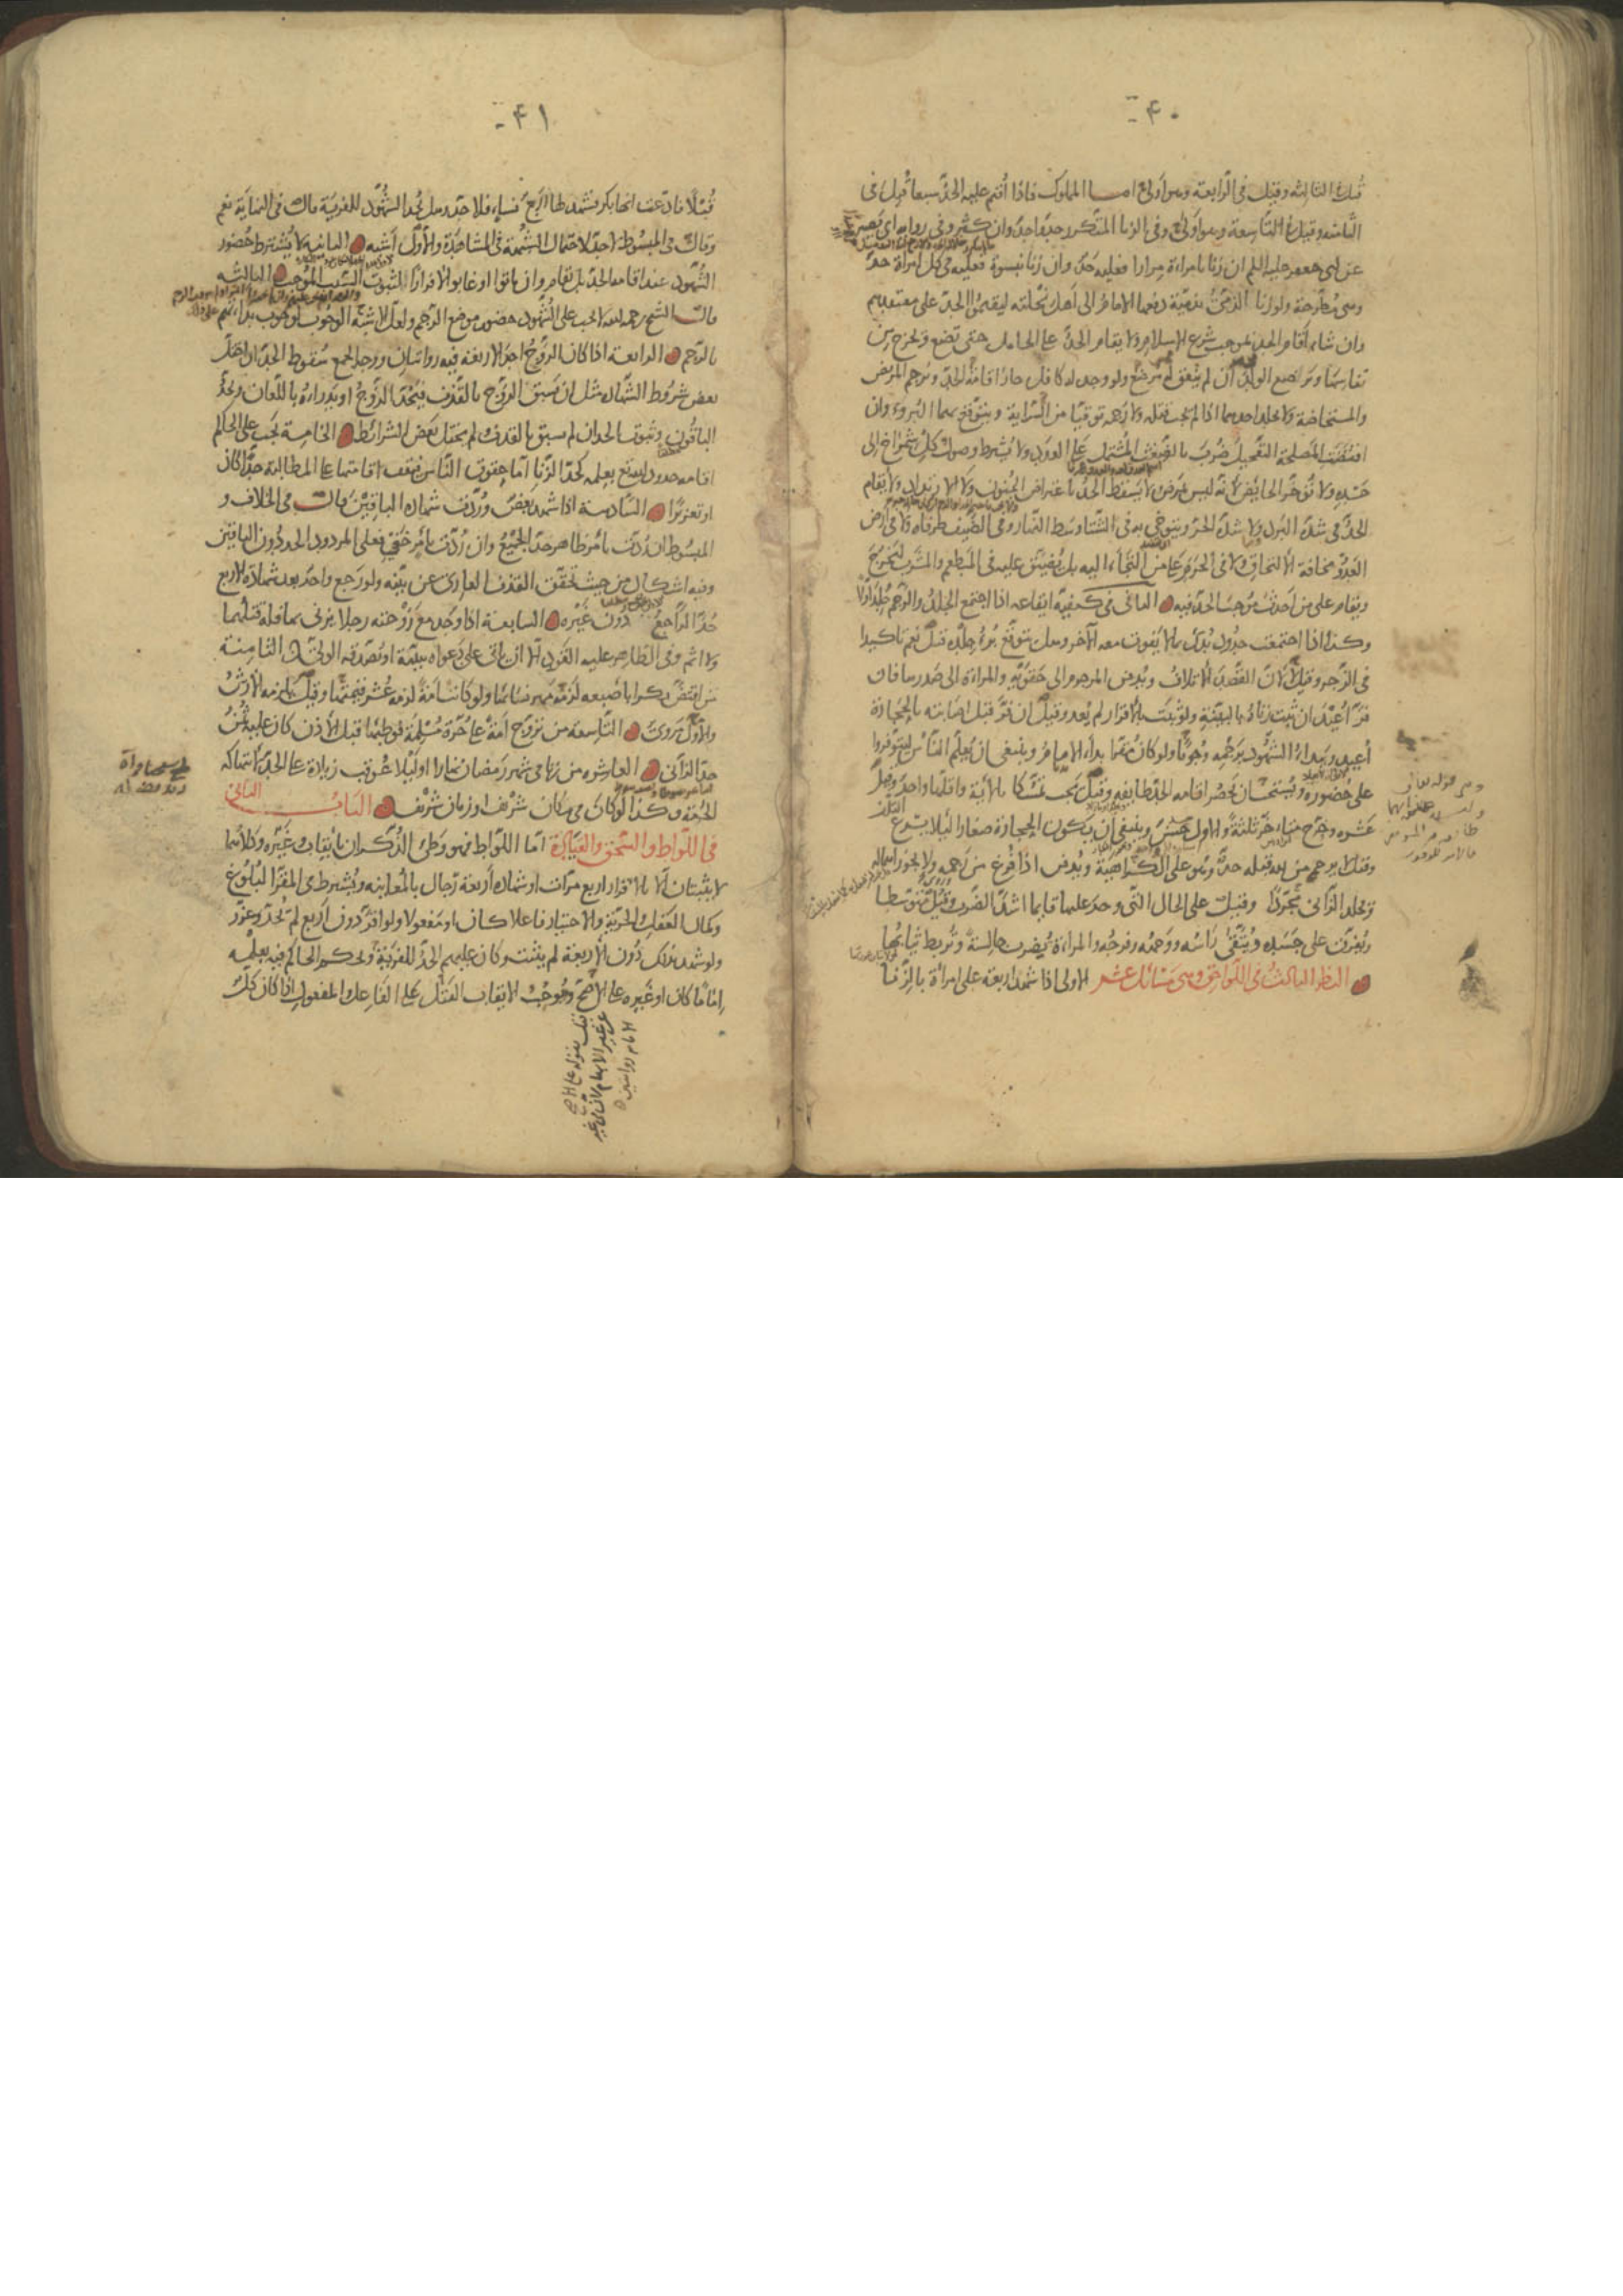 ۴۰
قتل في الثالثة وقيل في الرابعة وهو أولى اما المملوك فاذا أقيم عليه الحد سبعا قتل في
الثامنة وقيل في التاسعة وهو أولى وفي الزنا المتكرر حد واحد وان كثر وفي رواية ابى بصير
عن ابى جعفر عليه السلم ان زنا بامراة مرارا فعليه حد وان زنا بنسوة فعليه في كل امراة حد
وهى مطرحة ولو زنا الذمىّ بذمية دفعه الامام الى أهل نحلته ليقيموا الحد على معتقدهم
وان شاء أقام الحد بموجب شرع الاسلام ولا يقام الحد على الحامل حتى تضع وتخرج من
نفاسها وترضع الولد ان لم يتفق له مرضع ولو وجد له كافل جاز اقامة الحد ويرجم المريض
والمستحاضة ولا يجلد احدهما اذا لم يجب قتله ولا رجمه توقيا من السراية ويتوقع بهما البروء وان
اقتضت المصلحة التعجيل ضرب بالضغث المشتمل على العدد ولا يشترط وصول كل شمراخ الى
جسده ولا تؤخر الحايض لانه ليس بمرض ولا يسقط الحد باعتراض الجنون ولا الارتداد ولا يقام
الحد في شدة البرد ولا شدة الحر ويتوخى به في الشتا وسط النهار وفي الصيف طرفاه ولا في ارض
العدو مخافة الالتحاق ولا في الحرم على من التجاء اليه بل يضيق عليه في المطعم والمشرب ليخرج
ويقام على من أحدث موجب الحد فيه الثانى في كيفية ايقاعه اذا اجتمع الجلد والرجم جلد أولا
وكذا اذا اجتمعت حدود بدئ بما لا يفوت معه الآخر وهل يتوقع برء جلده قيل نعم تاكيدا
في الزجر وقيل لا لان القصد الاتلاف ويدفن المرجوم الى حقويه والمراة الى صدرها فان
فر أعيد ان ثبت زناه بالبينة ولو ثبت بالاقرار لم يعد وقيل ان فر قبل اصابته بالحجارة
أعيد ويبداء الشهود برجمه وجوبا ولو كان مقرا بداء الامام وينبغى ان يعلم الناس ليتوفروا
على حضوره ويستحب ان يحضر اقامة الحد طايفة وقيل يجب تمسكا بالآية واقلها واحد وقيل
عشرة وخرج متاخر ثلثة والاول حسن وينبغى ان يكون الحجارة صغارا لئلا يسرع التلف
وقيل لا يرجمه من لله قبله حد وهو على الكراهية ويدفن اذا فرغ من رجمه ولا يجوز اهماله
ويجلد الزانى مجردا وقيل على الحال التى وجد عليها قايما اشد الضرب وقيل متوسطا
ويفرق على جسده ويتقى راسه ووجهه وفرجه والمراة تضرب جالسة وتربط ثيابها
النظر الثالث في اللواحق وهى مسائل عشر الاولى اذا شهد اربعة على امراة بالزنا
۴۱
قبلا فادعت انها بكر فشهد لها اربع نساء فلا حد وهل يحد الشهود للفرية قال في النهاية نعم
وقال في المبسوط لا حد لاحتمال الشبهة في المشاهدة والاول أشبه الثانية لا يشترط حضور
الشهود عند اقامة الحد بل يقام وان ماتوا او غابوا لا فرارا لثبوت السبب الموجب الثالثة
قال الشيخ رحمه الله لا يجب على الشهود حضور موضع الرجم ولعل الاشبه الوجوب لوجوب بداءتهم
بالرجم الرابعة اذا كان الزوج احد الاربعة فيه روايتان ووجه الجمع سقوط الحد ان اختل
بعض شروط الشهادة مثل ان يسبق الزوج بالقذف فيحد الزوج او يدراء باللعان ويحد
الباقون وثبوت الحد ان لم يسبق بالقذف ولم يختل بعض الشرائط الخامسة يجب على الحاكم
اقامة حدود الله تع بعلمه كحد الزنا اما حقوق الناس فتقف اقامتها على المطالبة حدا كان
او تعزيرا السادسة اذا شهد بعض وردت شهادة الباقين قال في الخلاف و
المبسوط ان ردت بامر ظاهر حد الجميع وان ردت بامر خفى فعلى المردود الحد دون الباقين
وفيه اشكال من حيث تحقق القذف العارى عن بينة ولو رجع واحد بعد شهادة الاربع
حد الراجع دون غيره السابعة اذا وجد مع زوجته رجلا يزنى بها فله قتلهما
ولا اثم وفي الظاهر عليه القود الا ان ياتى على دعواه ببينة او يصدقه الولى الثامنة
من افتض بكرا باصبعه لزمه مهر نسائها ولو كانت امة لزمه عشر قيمتها وقيل يلزمه الارش
والاول مروى التاسعة من تزوج امة على حرة مسلمة فوطئها قبل الاذن كان عليه ثمن
حد الزانى العاشرة من زنا في شهر رمضان نهارا او ليلا عوقب زيادة على الحد لانتهاكه
الحرمة وكذا لو كان في مكان شريف او زمان شريف الباب الثانى
في اللواط والسحق والقيادة اما اللواط فهو وطئ الذكران بايقاب وغيره وكلاهما
لا يثبتان الا بالاقرار اربع مرات او شهادة أربعة رجال بالمعاينة ويشترط في المقر البلوغ
وكمال العقل والحرية والاختيار فاعلا كان او مفعولا ولو اقر دون اربع لم يحد وعزر
ولو شهد بذلك دون الاربعة لم يثبت وكان عليهم الحد للفرية ويحكم الحاكم فيه بعلمه
اماما كان او غيره على الاصح وموجب الايقاب القتل على الفاعل والمفعول اذا كان كل